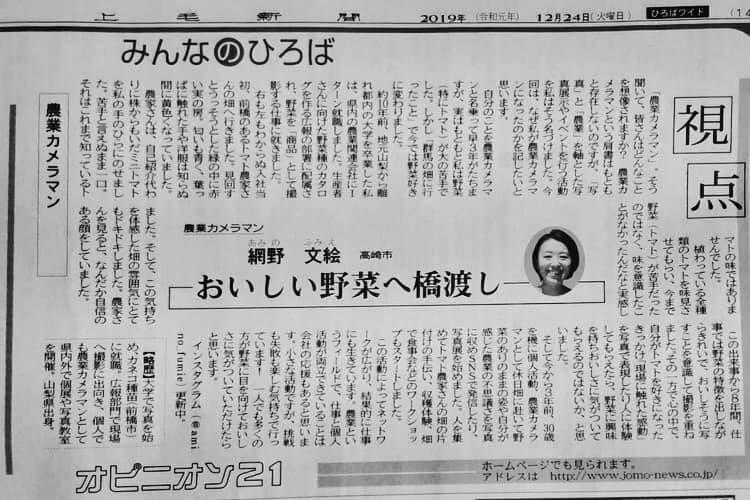 上毛新聞
2019年（令和元年）12月24日（火曜日）
ひろばワイド
(14
みんなのひろば
視点
農業カメラマン
網野 文絵 高崎市
あみの ふみえ
おいしい野菜へ橋渡し
「農業カメラマン」。そう
聞いて、皆さんはどんなこと
を想像されますか？ 農業カ
メラマンという肩書はもとも
と存在しないのですが、「写
真」と「農業」を軸とした写
真展示やイベントを行う活動
を私はそう名づけました。今
回は、なぜ私が農業カメラマ
ンになったのかを記したいと
思います。
自分のことを農業カメラマ
ンと名乗って早3年がたちま
すが、実はもともと私は野菜
（特にトマト）が大の苦手で
した。しかし「群馬の畑に行
ったこと」で今では野菜好き
に変わりました。
約10年前、地元山梨から離
れ都内の大学を卒業した私
は、県内の農業関連会社にI
ターン就職しました。生産者
さんに向けた野菜種のカタロ
グを作る広報の部署に配属さ
れ、野菜を「商品」として撮
影する仕事に就きました。
右も左もわからぬ入社当
初、前橋のあるトマト農家さ
んの畑へ行きました。見回す
とうっそうとした緑の中に赤
い実の房。匂いも青く、葉っ
ぱに触れた手や洋服は知らぬ
間に黄色くなっていました。
農家さんは、自己紹介代わ
りに株からもいだミニトマト
を私の手のひらにのせまし
た。苦手と言えぬまま一口。
それはこれまで知っているト
農業カメラマン
マトの味ではありま
せんでした。
植わっている全種
類のトマトを味見さ
せてもらい、今まで
野菜（トマト）が苦手だった
のではなく、味を意識したこ
とがなかったんだと実感し
ました。そして、この気持ち
を体感した畑の雰囲気にとて
もドキドキしました。農家さ
んを見ると、なんだか自信の
ある顔をしていました。
この出来事から8年間、仕
事では野菜の特徴を出しなが
らきれいで、おいしそうに写
すことを意識して撮影を重ね
ました。その一方で心の中で、
自分がトマトを好きになった
きっかけ「現場に触れた感動」
を写真で表現したり人に体験
してもらえたら、野菜に興味
を持ちおいしさに気がついて
もらえるのではないか、と思
いました。
そして今から3年前、30歳
を機に個人活動、農業カメラ
マンとして休日畑に赴いて野
菜のありのままの姿や自分が
感じた農業の不思議さを写真
に収めSNSで発信したり、
写真展を始めました。人を集
めてトマト農家さんの畑の片
付けの手伝い、収穫体験、畑
で食事会などのワークショッ
プもスタートしました。
この活動によってネットワ
ークが広がり、結果的に仕事
にも生きています。農業とい
うフィールドで、仕事と個人
活動が両立できていることは
会社の応援もあると思いま
す。小さな活動ですが、挑戦
も失敗も楽しむ気持ちで行っ
ています！ 一人でも多くの
方が野菜に目を向けておいし
さに気がついていただけたら
インスタグラム（@ami
no_fumie）更新中。
【略歴】大学で写真を始
め、カネコ種苗（前橋市）
に就職。広報部門で現場
へ撮影に出向き、個人で
も農業カメラマンとして
県内外で個展や写真教室
を開催。山梨県出身。
オピニオン21
ホームページでも見られます。
アドレスは http://www.jomo-news.co.jp/